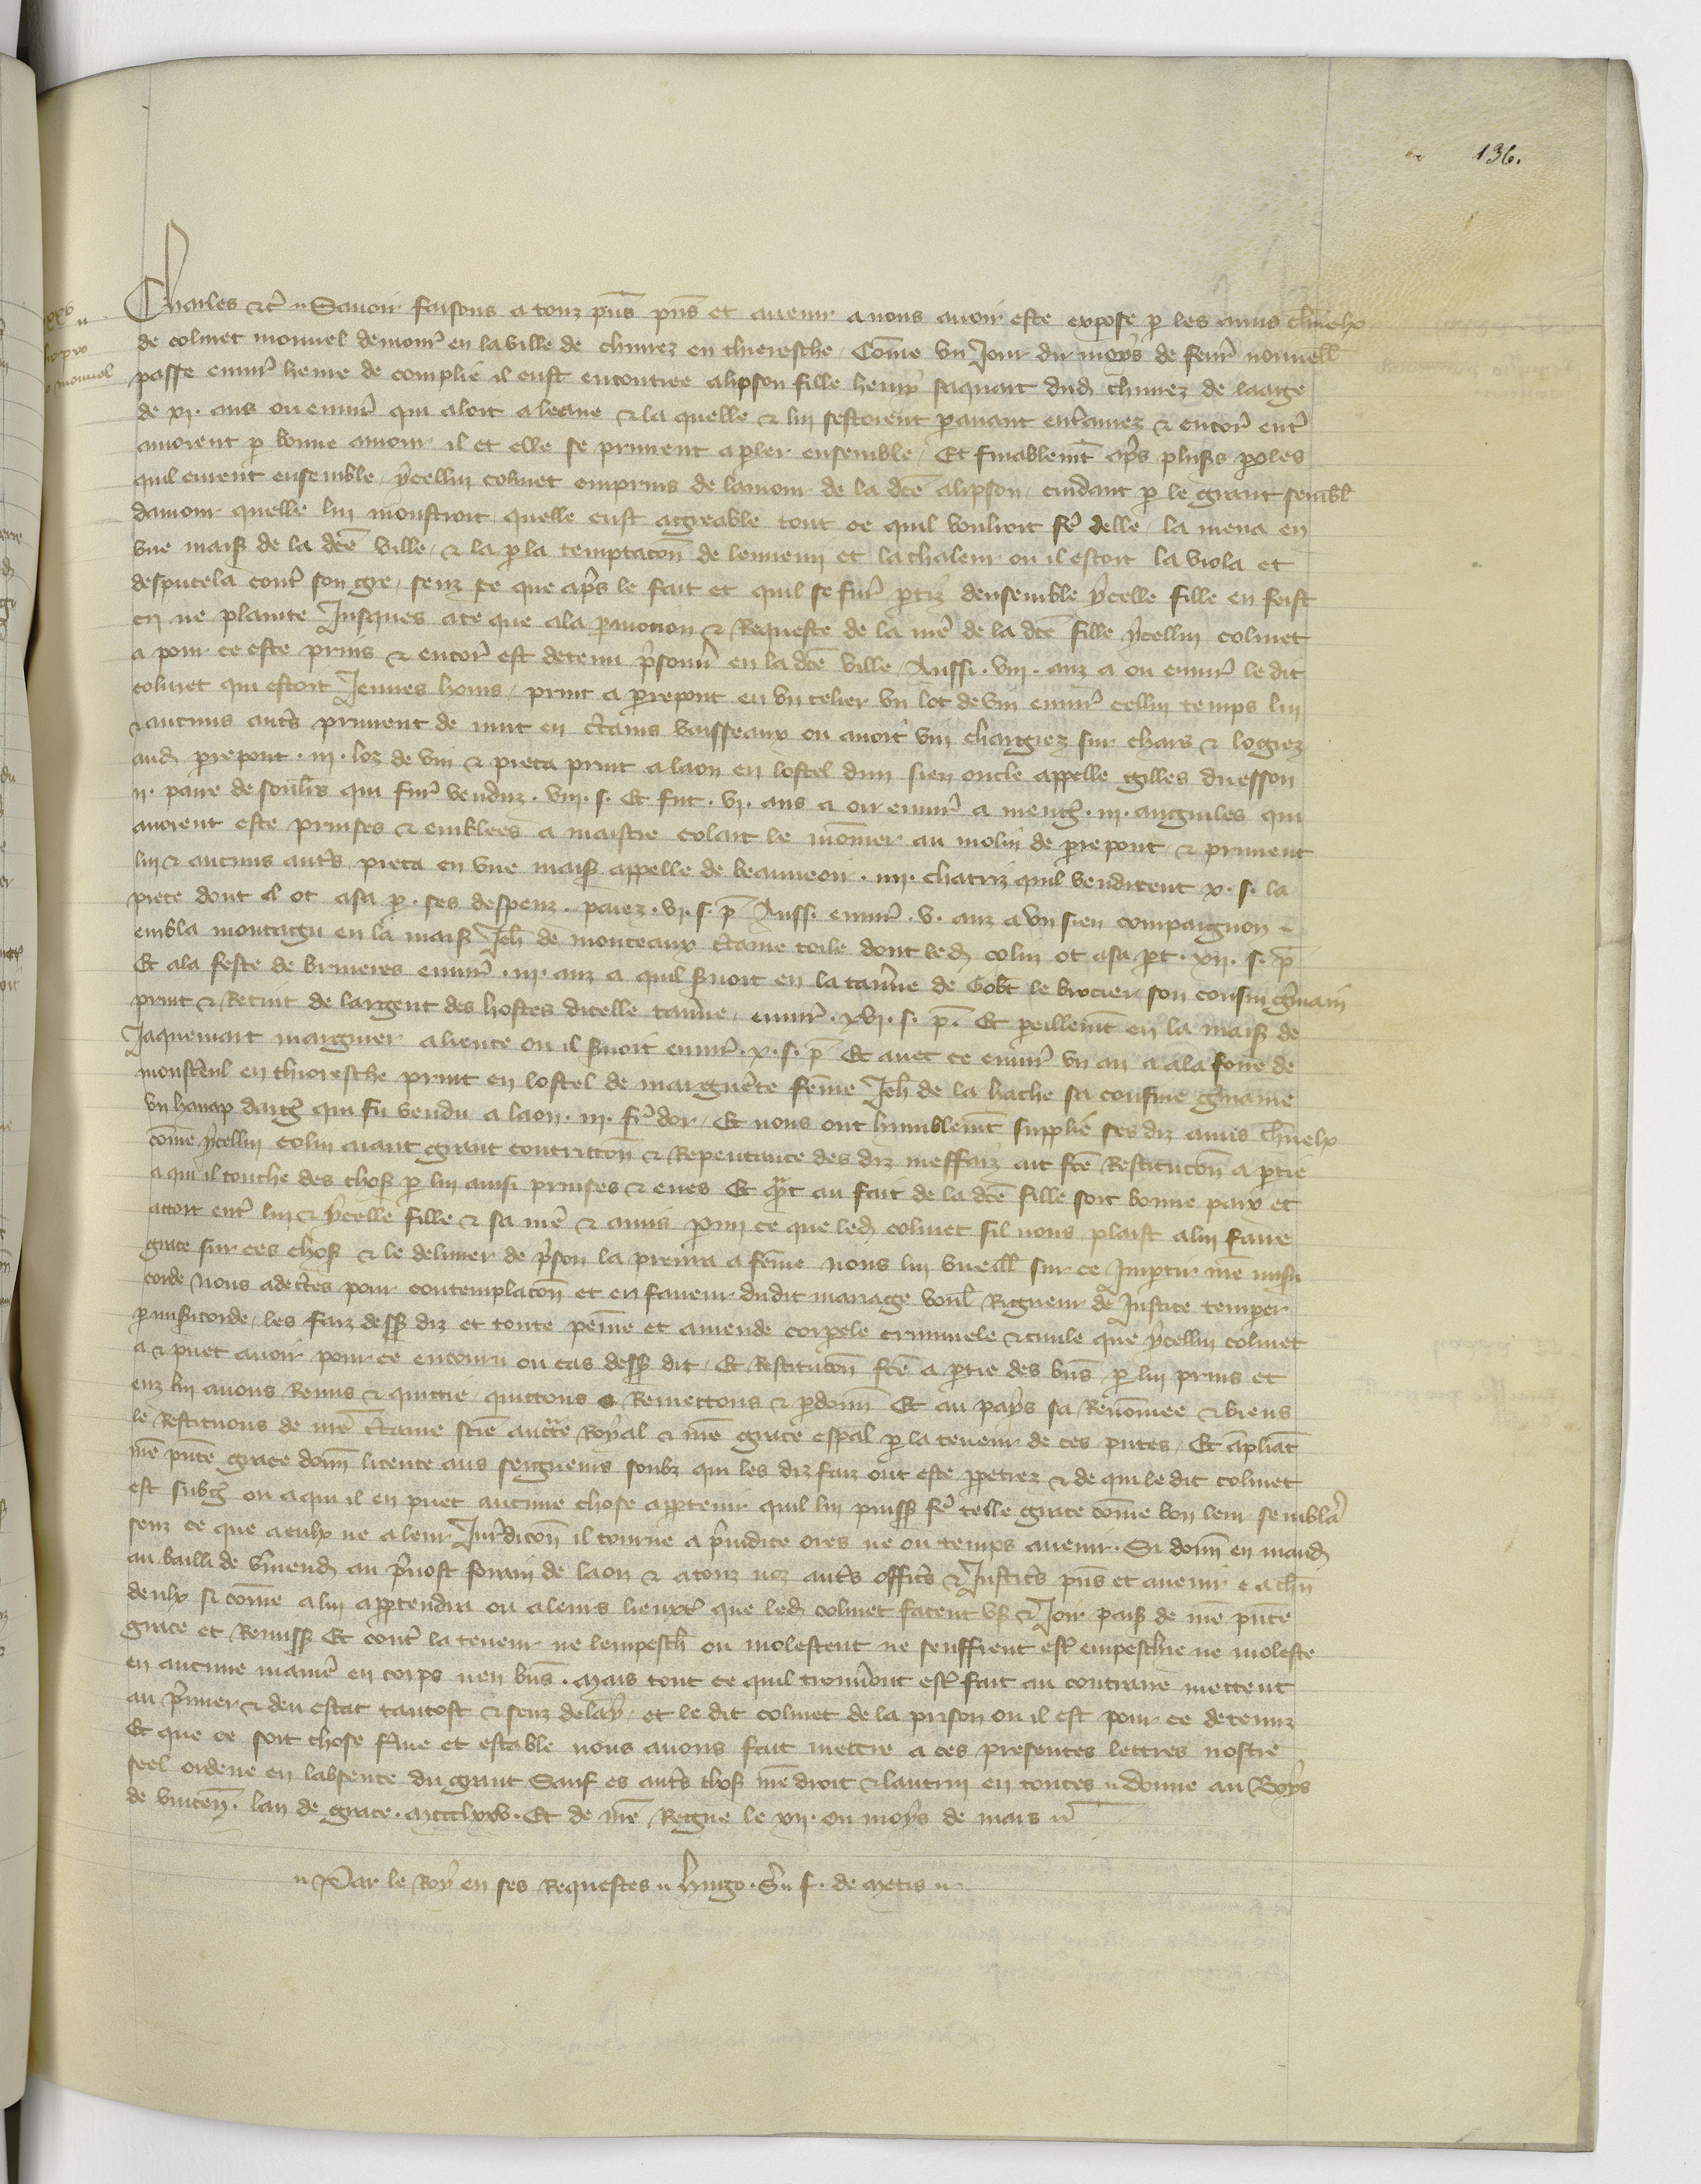 136.
Charles etc̄ Sauoir faisons a touz pn̄s pn̄s et auenir a nous auoir este expose p les amis charnelx
de colinet monuel demour̄ en la ville de chiuez en thieresche / Cōme vn Jour du moys de feur̄ nouuell̄
passe enuir̄ heure de complie il eust encontree alipson fille henry saquart dud chiuez de laage
de xi. ans ou enuir̄ qui aloit a leaue & la quelle & lui sestoient pauant ent̄amez & encor̄ ent̄
amoient p bonne amour il et elle se prinrent a pler ensemble / Et finablemt̄ ap̄s plus̄s poles
quil eurent ensemble / ycellui colinet emprins de lamour de la dc̄e alipson / cuidant p le grant sembl̄
damour quelle lui monstroit quelle eust agreable tout ce quil vouloit fē delle / la mena en
vne mais̄ de la dc̄e ville / & la p la temptacōn de lennemi et la chaleur ou il estoit la viola et
despucela cont̄ son gre / senz ce que ap̄s le fait et quil se fur̄ ptiz densemble ycelle fille en feist
cry ne plainte Jusques a ce que a la pmocion & Requeste de la mē de la dc̄e fille ycellui colinet
a pour ce este prins & encor̄ est detenu p̄sonn̄ en la dc̄e ville / Aussi . viii . anz a ou enuir̄ le dit
colinet qui estoit Jeunes homs / print a prepont en vn celier vn lot de vin enuir̄ cellui temps lui
& aucuns aut̄s prinrent de nuit en c̄tains vaisseaux ou auoit vin chargiez sur chars & logiez
aud prepont . iii . loz de vin & pieca print a laon en lostel dun sien oncle appelle gilles duesson
ii . paire de soulers qui fur̄ venduz . viii . s . Et fut . vi . ans a ou enuir̄ a menḡ . iii . anguiles qui
auoient este prinses & emblees a maistre colart le mōnier au molin de prepont & prinrent
lui & aucuns aut̄s / pieca en vne mais̄ appelle de beauueoir . iiii . chatriz quil vendirent x . s . la
piece dont il ot a sa p . ses despenz . paiez . vi . s . p̄ Aussi enuir̄ . v . anz a vn sien compaignon &
embla montagu en la mais̄ Jeh̄ de monceaux c̄taine toile dont led colin ot a sa pt . xii . s . p̄
Et a la feste de bruieres enuir̄ . iii . anz a quil s̄uoit en la tau̅ne de Gob̄t le brocier son cousin g̅main
print & Retint de largent des hostes dicelle tau̅ne / enuir̄ . xvi . s . p̄ . Et peillemt̄ en la mais̄ de
Jaquemart marguier a lience ou il s̄uoit enuir̄ . x . s . p̄ Et auec ce enuir̄ vn an a a la foire de
monst̄eul en thieresche print en lostel de marguer̄ite fēme Jeh̄ de la hache sa cousine g̅maine
vn hanap darḡ qui fu vendu a laon . iii . fr̄ dor / Et nous ont humblemt̄ supplie ses diz amis charnelx
cōme ycellui colin aiant grant contriccōn & Repentance des diz meffaiz ait fc̄e Restitucōn a ptie
a qui il touche des chos̄ p lui ainsi prinses & eues Et qua̅t au fait de la dc̄e fille soit bonne paix et
acort ent̄ lui & ycelle fille & sa mē & amis pmi ce que led colinet sil nous plaist a lui faire
grace sur ces chos̄ & le deliurer de p̄son la prenra a fēme nous lui vueill̄ sur ce Impartir nr̄e miseri
corde Nous adec̄tes pour contemplacōn et en faueur dudit mariage voul̄ Rigueur de Justice temper
p misericorde / les faiz dess̄ diz et toute peine et amende corpele criminele & ciuile que ycellui colinet
a & puet auoir pour ce encouru ou cas dess̄ dit / Et Restitucōn fc̄e a ptie des biēs p lui prins et
euz lui auons Remis & quictie / quictons Remettons & pdonn̄ Et au pays sa Renōmee & biens
le Restituons de nr̄e c̄taine scie̅ auct̄te Royal & nr̄e grace esp̄al p la teneur de ces pntes / Et ampliat̄
nr̄e pnte grace donn̄ licence aus seigneurs soubz qui les diz faiz ont este ppetrez & de qui le dit colinet
est subḡ ou a qui il en puet aucune chose appartenir quil lui puiss̄ fē telle grace cōme bon leur semblā
senz ce que a eulx ne a leur Jur̄dicōn il tourne a p̄iudice ores ne ou temps auenir . Si donn̄ en mand̄
au bailli de v̄mend au p̄uost forain de laon & a touz noz aut̄s offic̄s & Justic̄s pn̄s et auenir & a chūn
deulx si cōme a lui appartendra ou a leurs lieuxt̄ que led colinet facent vs̄ & Joir pais̄ de nr̄e pnte
grace et Remiss̄ Et cont̄ la teneur ne lempesch̄ ou molestent ne seuffrent est̄ empeschie ne moleste
en aucune manīe en corps nen biēs . Mais tout ce quil trouu̅ont est̄ fait au contraire mettent
au p̄mier & deu estat tantost & senz delay / et le dit colinet de la prison ou il est pour ce detenuz
Et que ce soit chose ferme et estable nous auons fait mettre a ces presentes lettres nostre
seel ordene en labsence du grant Sauf es aut̄s chos̄ nr̄e droit & lautrui en toutes Donne au Boys
de vincēn . lan de grace . mccclxxv . Et de nr̄e Regne le xii . ou moys de mars
Par le Roy en ses Requestes Hugo . S̄ . f . de metis